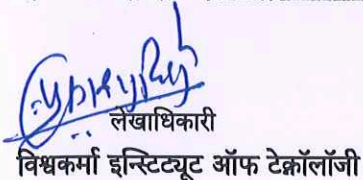 लेखाधिकारी
विश्वकर्मा इन्स्टिट्यूट ऑफ टेक्नॉलॉजी